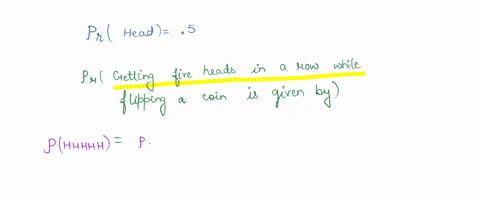 Pr( Head) = .5
Pr( Getting five heads in a row while
flipping a coin is given by)
P(HHHHH) = P.